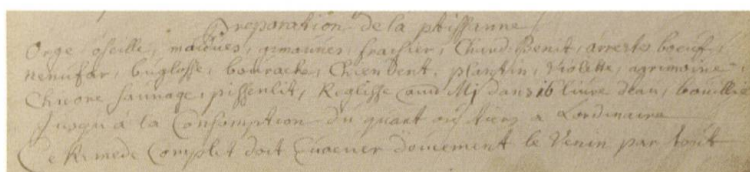 Preparation de la ptissanne
Orge, oseille, mauves, fraisier, Benit, arreste boeuf,
nenufar, buglosse, bourache, Chiendent, plantin, violette, agrimoine
Chicore sauvage, pissenlit, Reglisse dans 16 livre deau, bouillie
Jusqu'à la Consomption du quart ou tiers a Lordinaire
Ce Remede Complit doit Evacuer doucement le Venin par